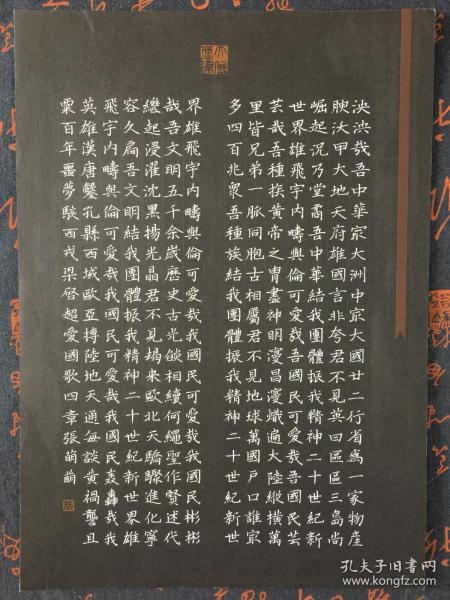 泱泱哉吾中華宗大洲中宗大國廿二行省為一家物產
腴沃甲大地天府雄國言非夸君不見英曰區區三島尚
崛起況乃堂矞吾中華結我團體振我精神二十世紀新
世界雄飛宇內疇與倫可愛哉吾國民可愛哉吾國民芸
芸哉吾種族黃帝之胄盡神明濅昌濅熾遍大陸縱橫萬
里皆兄弟一脈同胞古相屬君不見地球萬國戶口誰家
多四百兆眾吾種族結我團體振我精神二十世紀新世
界雄飛宇內疇與倫可愛哉我國民可愛哉我國民彬彬
哉吾文明五千余歲歷史古光燄相續何繩聖作賢述代
繼起浸濯沈黑揚光晶君不見蝎來歐北天驕驟進化寧
容久扃吾文明結我團體振我精神二十世紀新世界雄
飛宇內疇與倫可愛哉我國民可愛哉我國民轟轟哉我
英雄漢唐鑿孔縣西域歐亞摶陸地天通每談黃禍讋且
粟百年噩夢駭西戎梁啓超愛國歌四章張萌萌
孔夫子旧书网